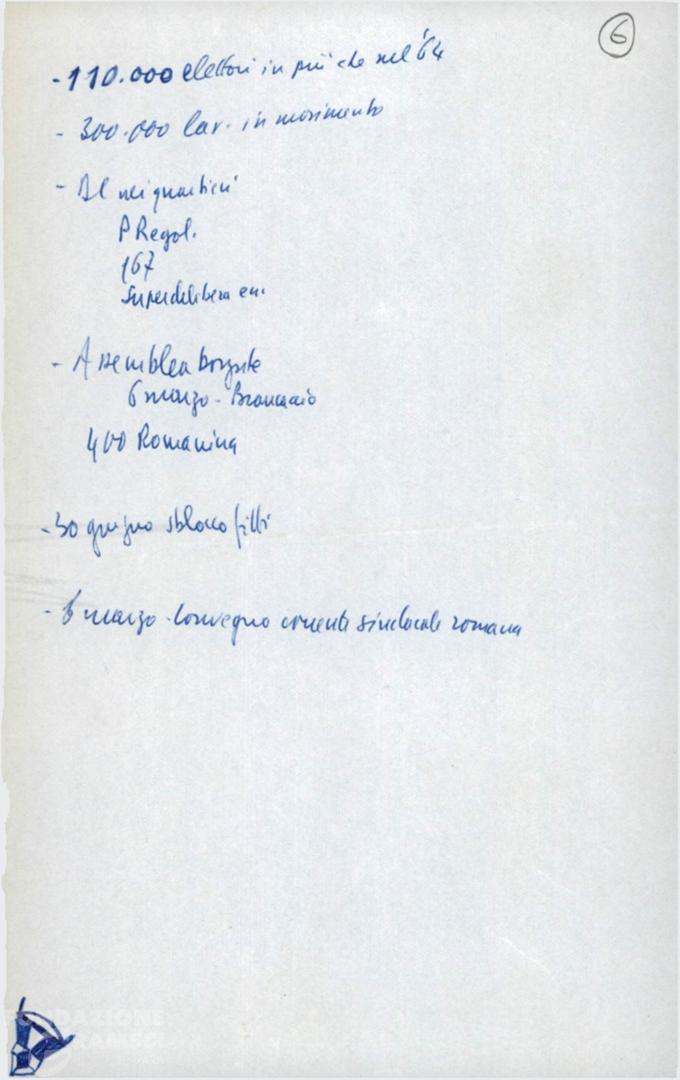 6
- 110.000 elettori in più che nel '64
- 300.000 lav. in movimento
- nei quartieri
P Regol.
167
Superdelibera
- Assemblea borgate
6 marzo - Brancaccio
400 Romanina
- 30 giugno sblocco fitti
- 6 marzo - Convegno corrente sindacale romana
FONDAZIONE
GRAMSCI